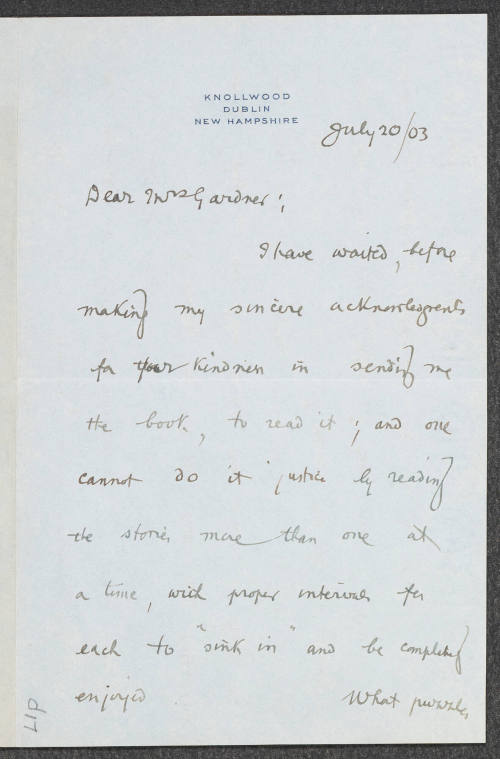 KNOLLWOOD
DUBLIN
NEW HAMPSHIRE
July 20/03
Dear Mrs Gardner;
I have waited, before
making my sincere acknowledgments
for your kindness in sending me
the book, to read it; and one
cannot do it justice by reading
the stories more than one at
a time, with proper intervals for
each to "sink in" and be completely
enjoyed What puzzles